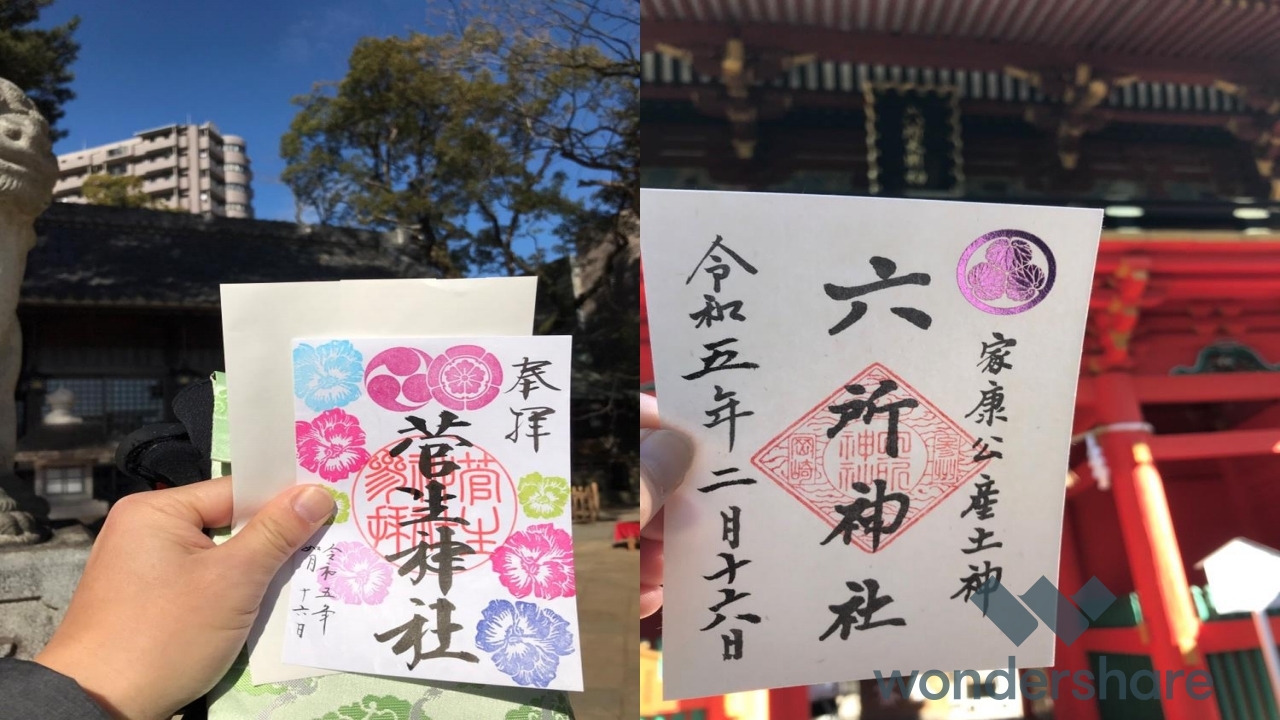 奉拝
菅生神社
令和五年
月
十六日
家康公産土神
六所神社
岡崎
令和五年二月十六日
wondershare